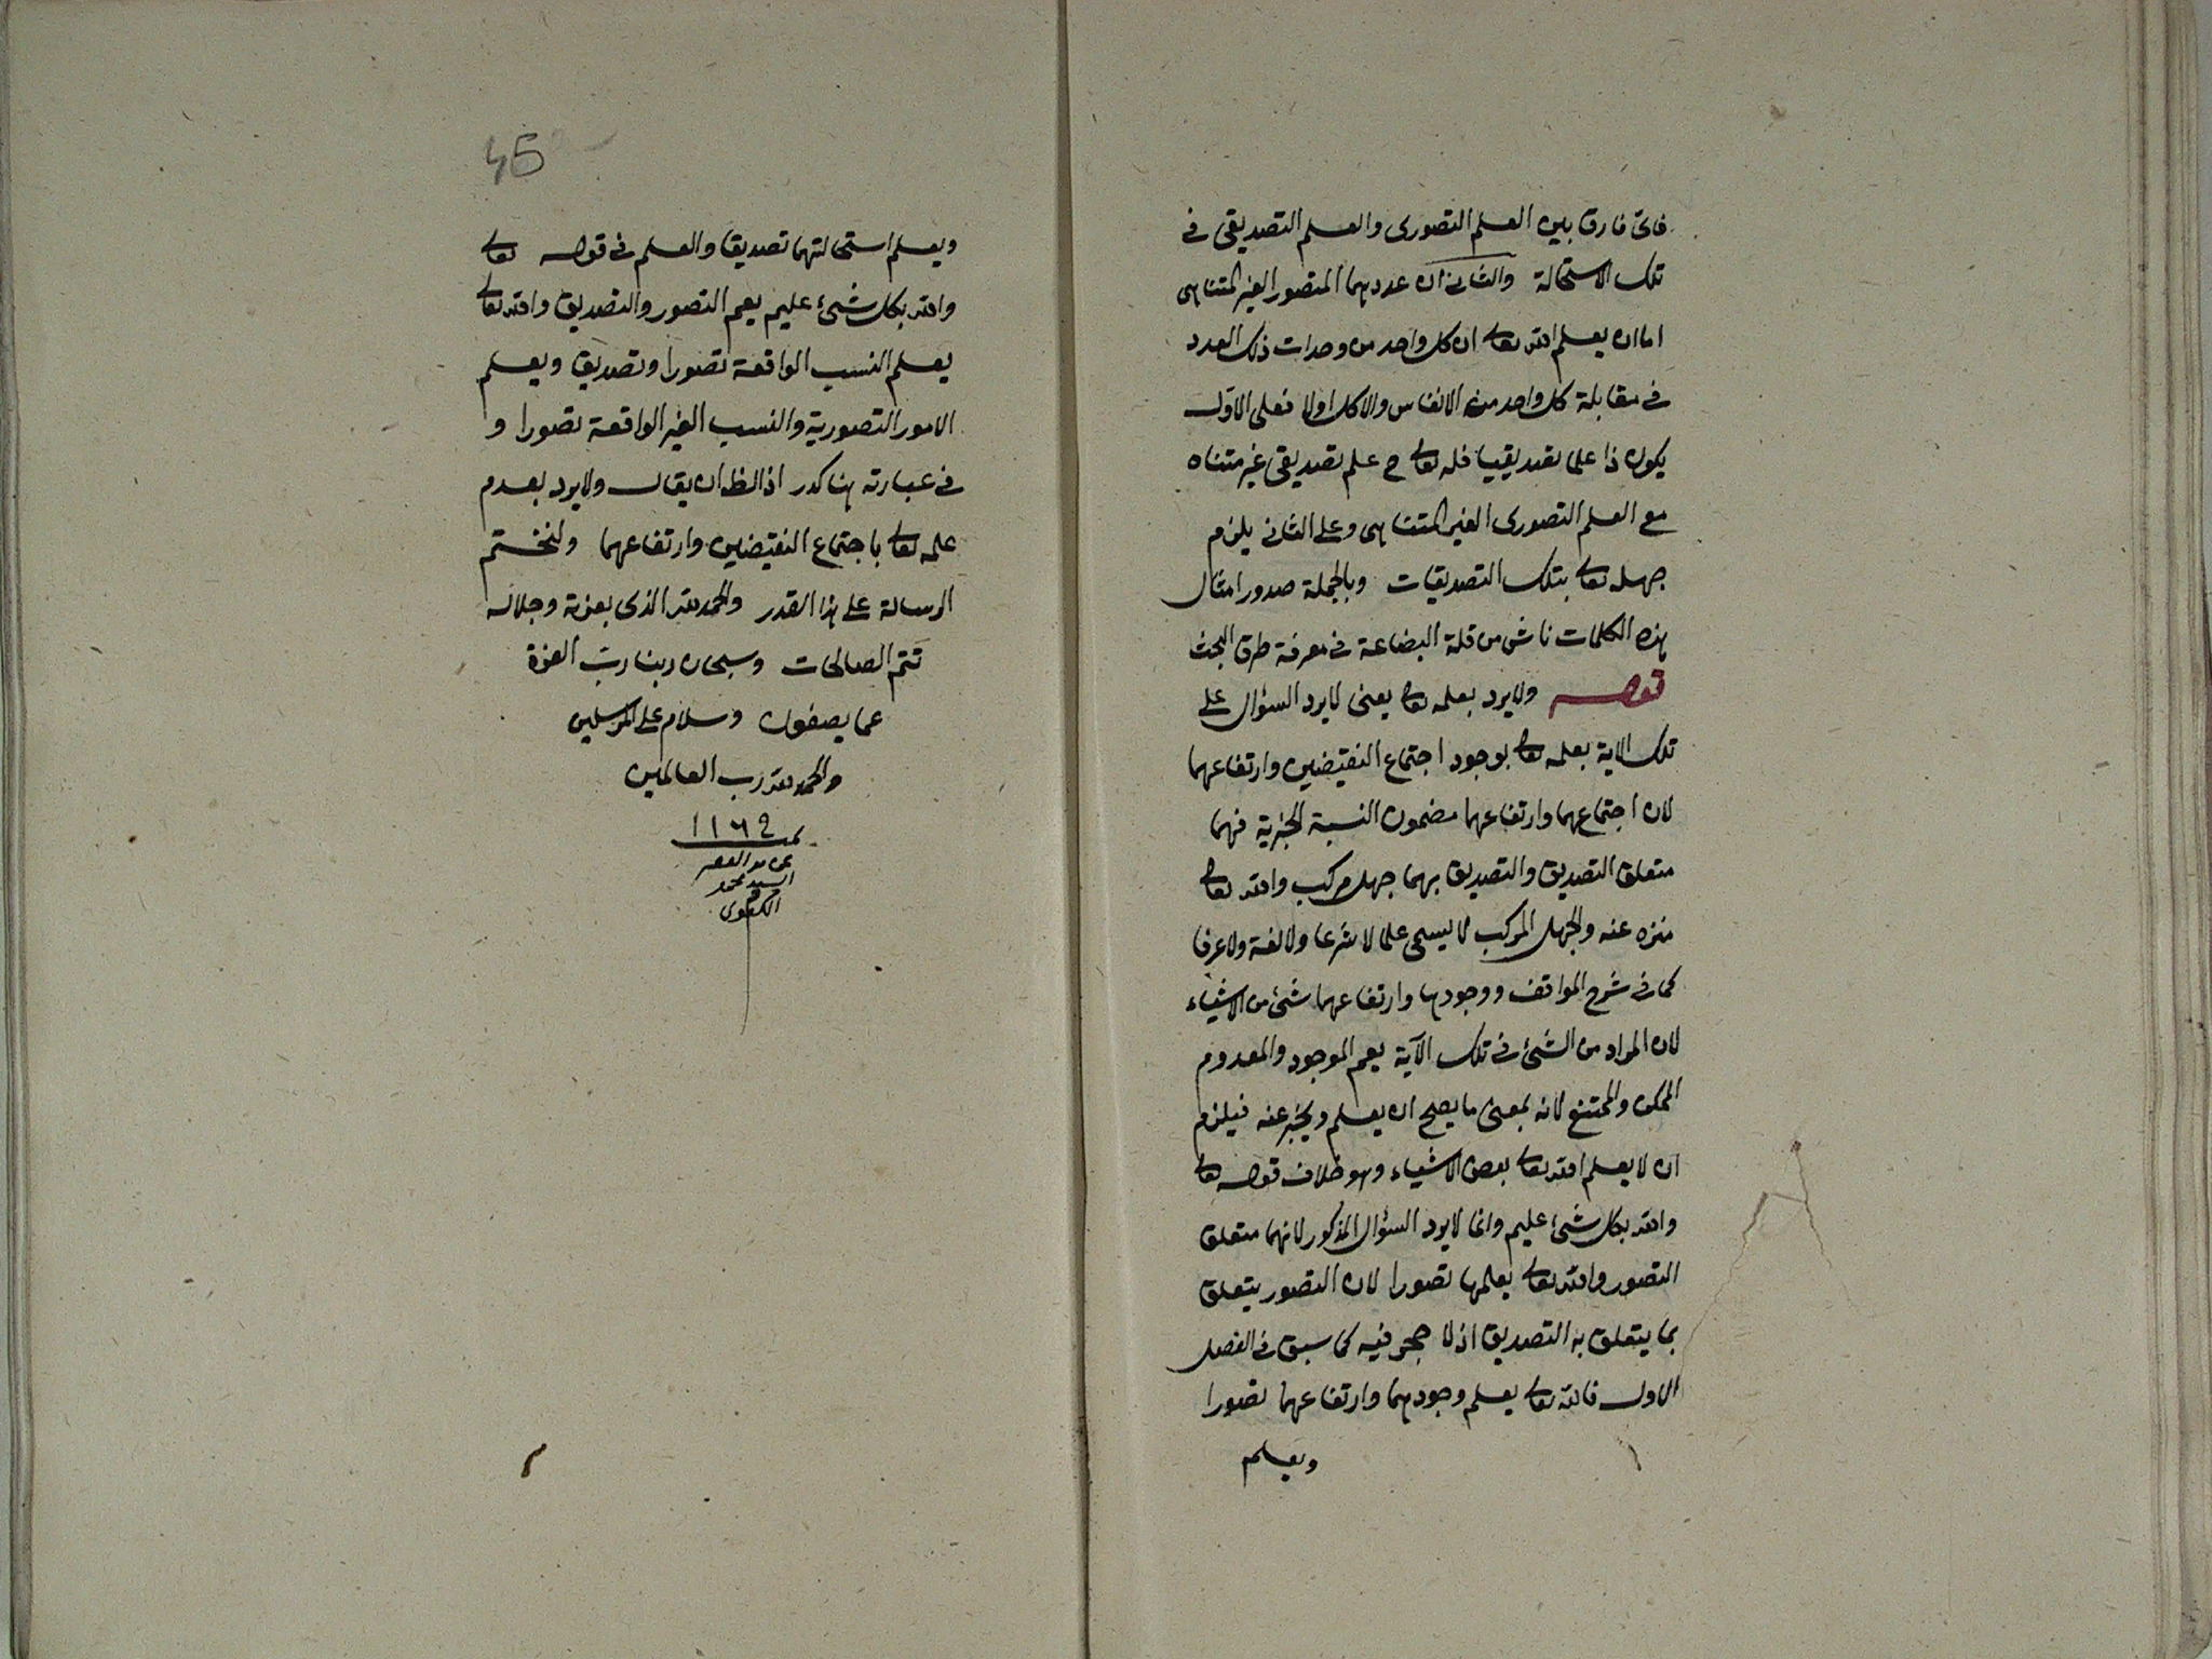 فاى فارق بين العلم التصورى والعلم التصديقى فى
تلك الاستحالة والثانى ان عددهما المتصور الغير المتناهى
اما ان يعلم الله تعالى ان كل واحد من وحدات ذلك العدد
فى مقابلة كل واحد من الانفاس والاكل اولا فعلى الاول
يكون ذا علما تصديقيا فله تعالى ح علم تصديقى غير متناه
مع العلم التصورى الغير المتناهى وعلى الثانى يلزم
جهله تعالى بتلك التصديقات وبالجملة صدور امثال
هذه الكلمات ناش من قلة البضاعة فى معرفة طرق البحث
قوله ولا يرد بعلمه تعالى يعنى لا يرد السؤال على
تلك الاية بعلمه تعالى بوجود اجتماع النقيضين وارتفاعهما
لان اجتماعهما وارتفاعهما مضمون النسبة الخبرية فهما
متعلق التصديق والتصديق بهما جهل مركب والله تعالى
منزه عنه والجهل المركب لا يسمى علما لا شرعا ولا لغة ولا عرفا
كما فى شرح المواقف ووجودها وارتفاعهما شئ من الاشياء
لان المراد من الشئ فى تلك الآية يعم الموجود والمعدوم
الممكن والممتنع لانه بمعنى ما يصح ان يعلم ويخبر عنه فيلزم
ان لا يعلم الله تعالى بعض الاشياء وهو خلاف قوله تعالى
والله بكل شئ عليم وانما لا يرد السؤال المذكور لانهما متعلق
التصور والله تعالى يعلمها تصورا لان التصور يتعلق
بما يتعلق به التصديق اذ لا حجر فيه كما سبق فى الفصل
الاول فالله تعالى يعلم وجودهما وارتفاعهما تصورا
ويعلم
45
ويعلم استحالتهما تصديقا والعلم فى قوله تعالى
والله بكل شئ عليم يعم التصور والتصديق والله تعالى
يعلم النسب الواقعة تصورا وتصديق ويعلم
الامور التصورية والنسب الغير الواقعة تصورا و
فى عبارته هنا كدر اذ الظ ان يقال ولا يرد بعدم
علمه تعالى باجتماع النقيضين وارتفاعهما ولنختم
الرسالة على هذا القدر والحمد لله الذى بعزته وجلاله
تتم الصالحات وسبحان ربنا رب العزة
عما يصفون وسلام على المرسلين
والحمد لله رب العالمين
تمت ١١٦٢
السيد محمد
الكفوى